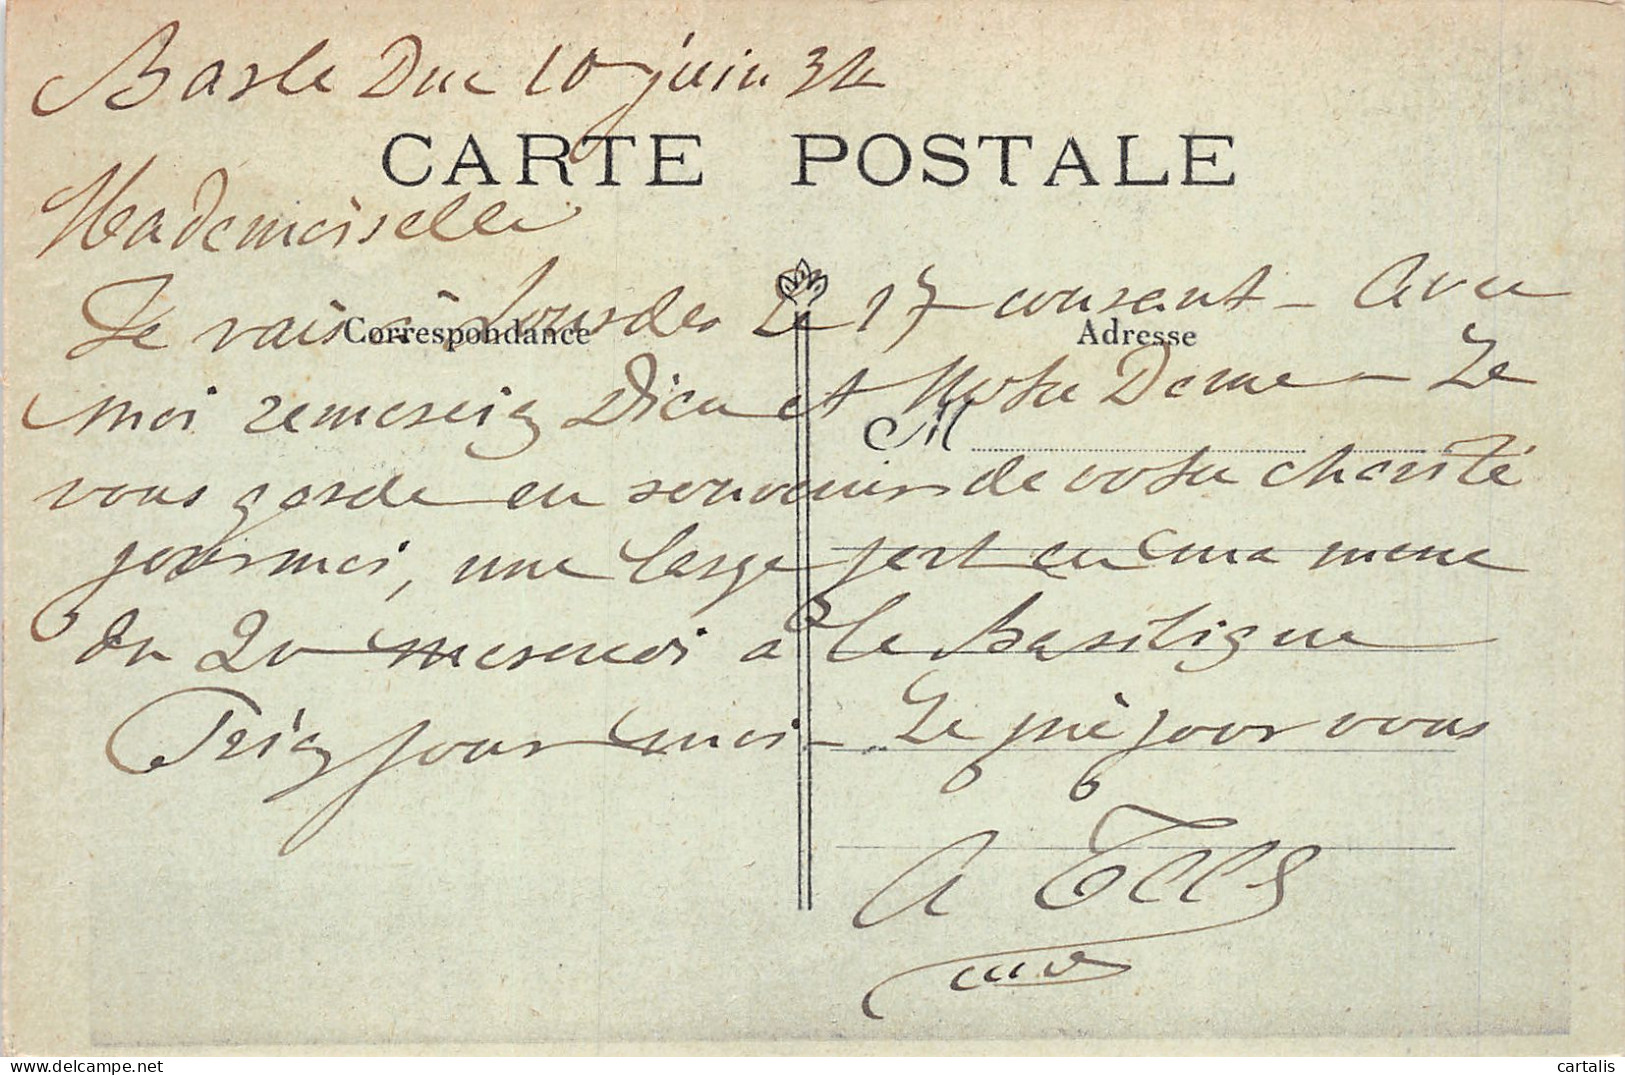 Basle Duc 10 juin 32
CARTE POSTALE
Mademoiselle
Je vais à Lourdes Le 17 courant - Avec
Correspondance Adresse
moi remerciez Dieu et Notre Dame - Je
M
vous garde en souvenir de votre charité
pour moi, une large part en ma
du 20 à la Basilique
Priez pour moi - Je prie pour vous
A
delcampe.net
cartalis